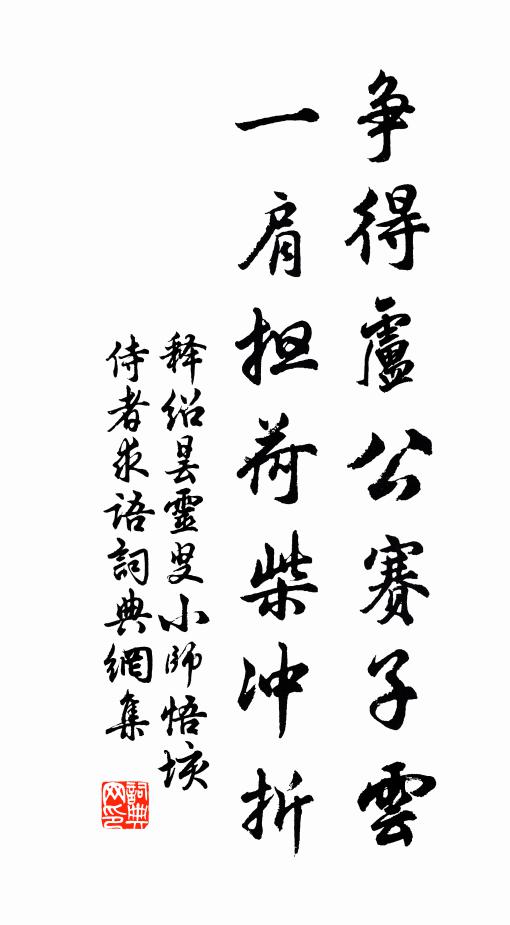 争得盧公賽子雲
一肩担荷柴冲折
释绍昙靈叟小師悟垓
侍者求语詞典網集
詞典网印